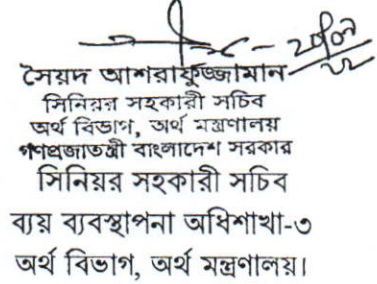 সৈয়দ আশরাফুজ্জামান
সিনিয়র সহকারী সচিব
অর্থ বিভাগ, অর্থ মন্ত্রণালয়
গণপ্রজাতন্ত্রী বাংলাদেশ সরকার
সিনিয়র সহকারী সচিব
ব্যয় ব্যবস্থাপনা অধিশাখা-৩
অর্থ বিভাগ, অর্থ মন্ত্রণালয়।